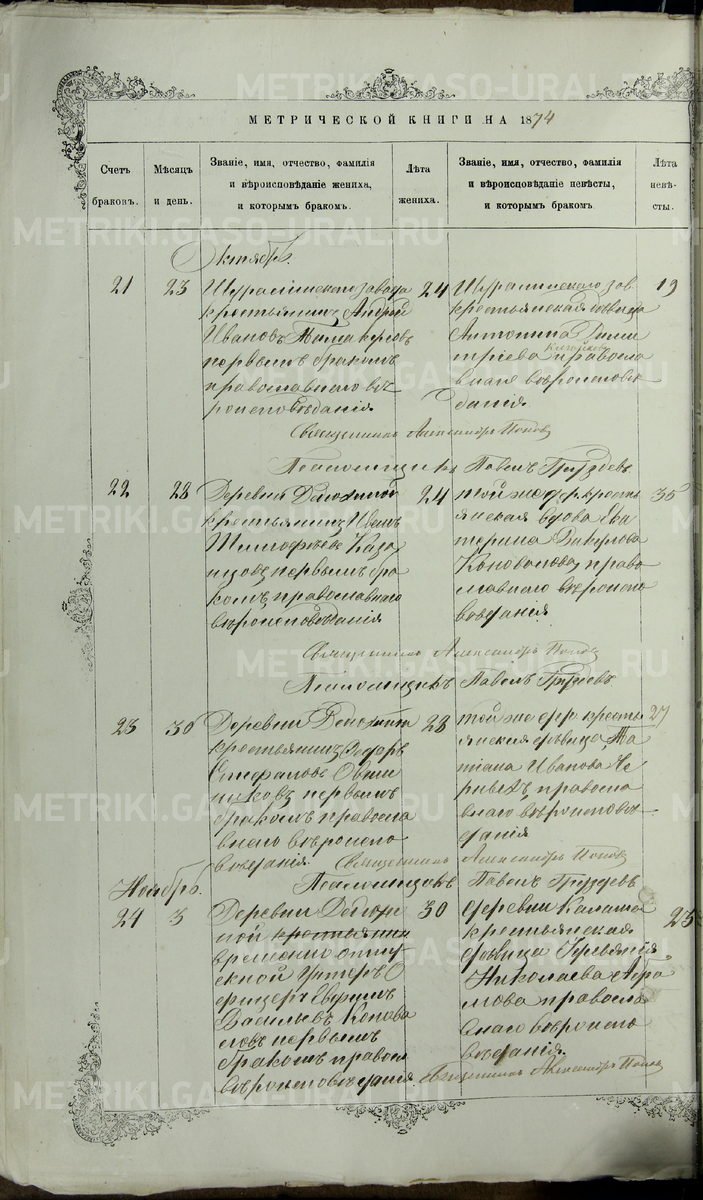 МЕТРИЧЕСКОЙ КНИГИ НА 1874
Счетъ браковъ.
Мѣсяцъ и день.
Званіе, имя, отчество, фамилія
и вѣроисповѣданіе жениха,
и которымъ бракомъ.
Лѣта жениха.
Званіе, имя, отчество, фамилія
и вѣроисповѣданіе невѣсты,
и которымъ бракомъ.
Лѣта невѣсты.
Октябрь.
21
23
Шуралинскаго завода
крестьянинъ Андрей
Ивановъ
первымъ бракомъ
православнаго вѣ-
роисповѣданія.
24
Шуралинскаго зав.
крестьянская дѣвица
Антонина Дими
тріева правосла
внаго вѣроисповѣ-
данія.
19
Священникъ Александръ Поповъ
Псаломщикъ Павелъ Груздевъ
22
28
Деревни
крестьянинъ Иванъ
Тимофѣевъ Каза
нцовъ первымъ бра
комъ православнаго
вѣроисповѣданія
24
той же дер. кресть
янская вдова Ека
терина Вакулова
Коновалова, право
славнаго вѣроиспо
вѣданія
35
Священникъ Александръ Поповъ
Псаломщикъ Павелъ Груздевъ
23
30
Деревни
крестьянинъ Федоръ
Стефановъ Овчи
никовъ первымъ
бракомъ правосла
внаго вѣроиспо
вѣданія.
28
той же дер. кресть
янская дѣвица Та
тіана Иванова Че
рныхъ правосла
внаго вѣроисповѣ-
данія
27
Священникъ Александръ Поповъ
Псаломщикъ Павелъ Груздевъ
Ноябрь.
24
3
Деревни
временно отпу
скной Унтеръ О
фицеръ
Васильевъ Конова
ловъ первымъ
бракомъ правосл
вѣроисповѣданія
30
деревни Калата
крестьянская
дѣвица
Николаева Абра
мова правосла
внаго вѣроиспо
вѣданія.
23
Священникъ Александръ Поповъ
METRIKI.GASO-URAL.RU
METRIKI.GASO-URAL.RU
METRIKI.GASO-URAL.RU
METRIKI.GASO-URAL.RU
METRIKI.GASO-URAL.RU
METRIKI.GASO-URAL.RU
METRIKI.GASO-URAL.RU
METRIKI.GASO-URAL.RU